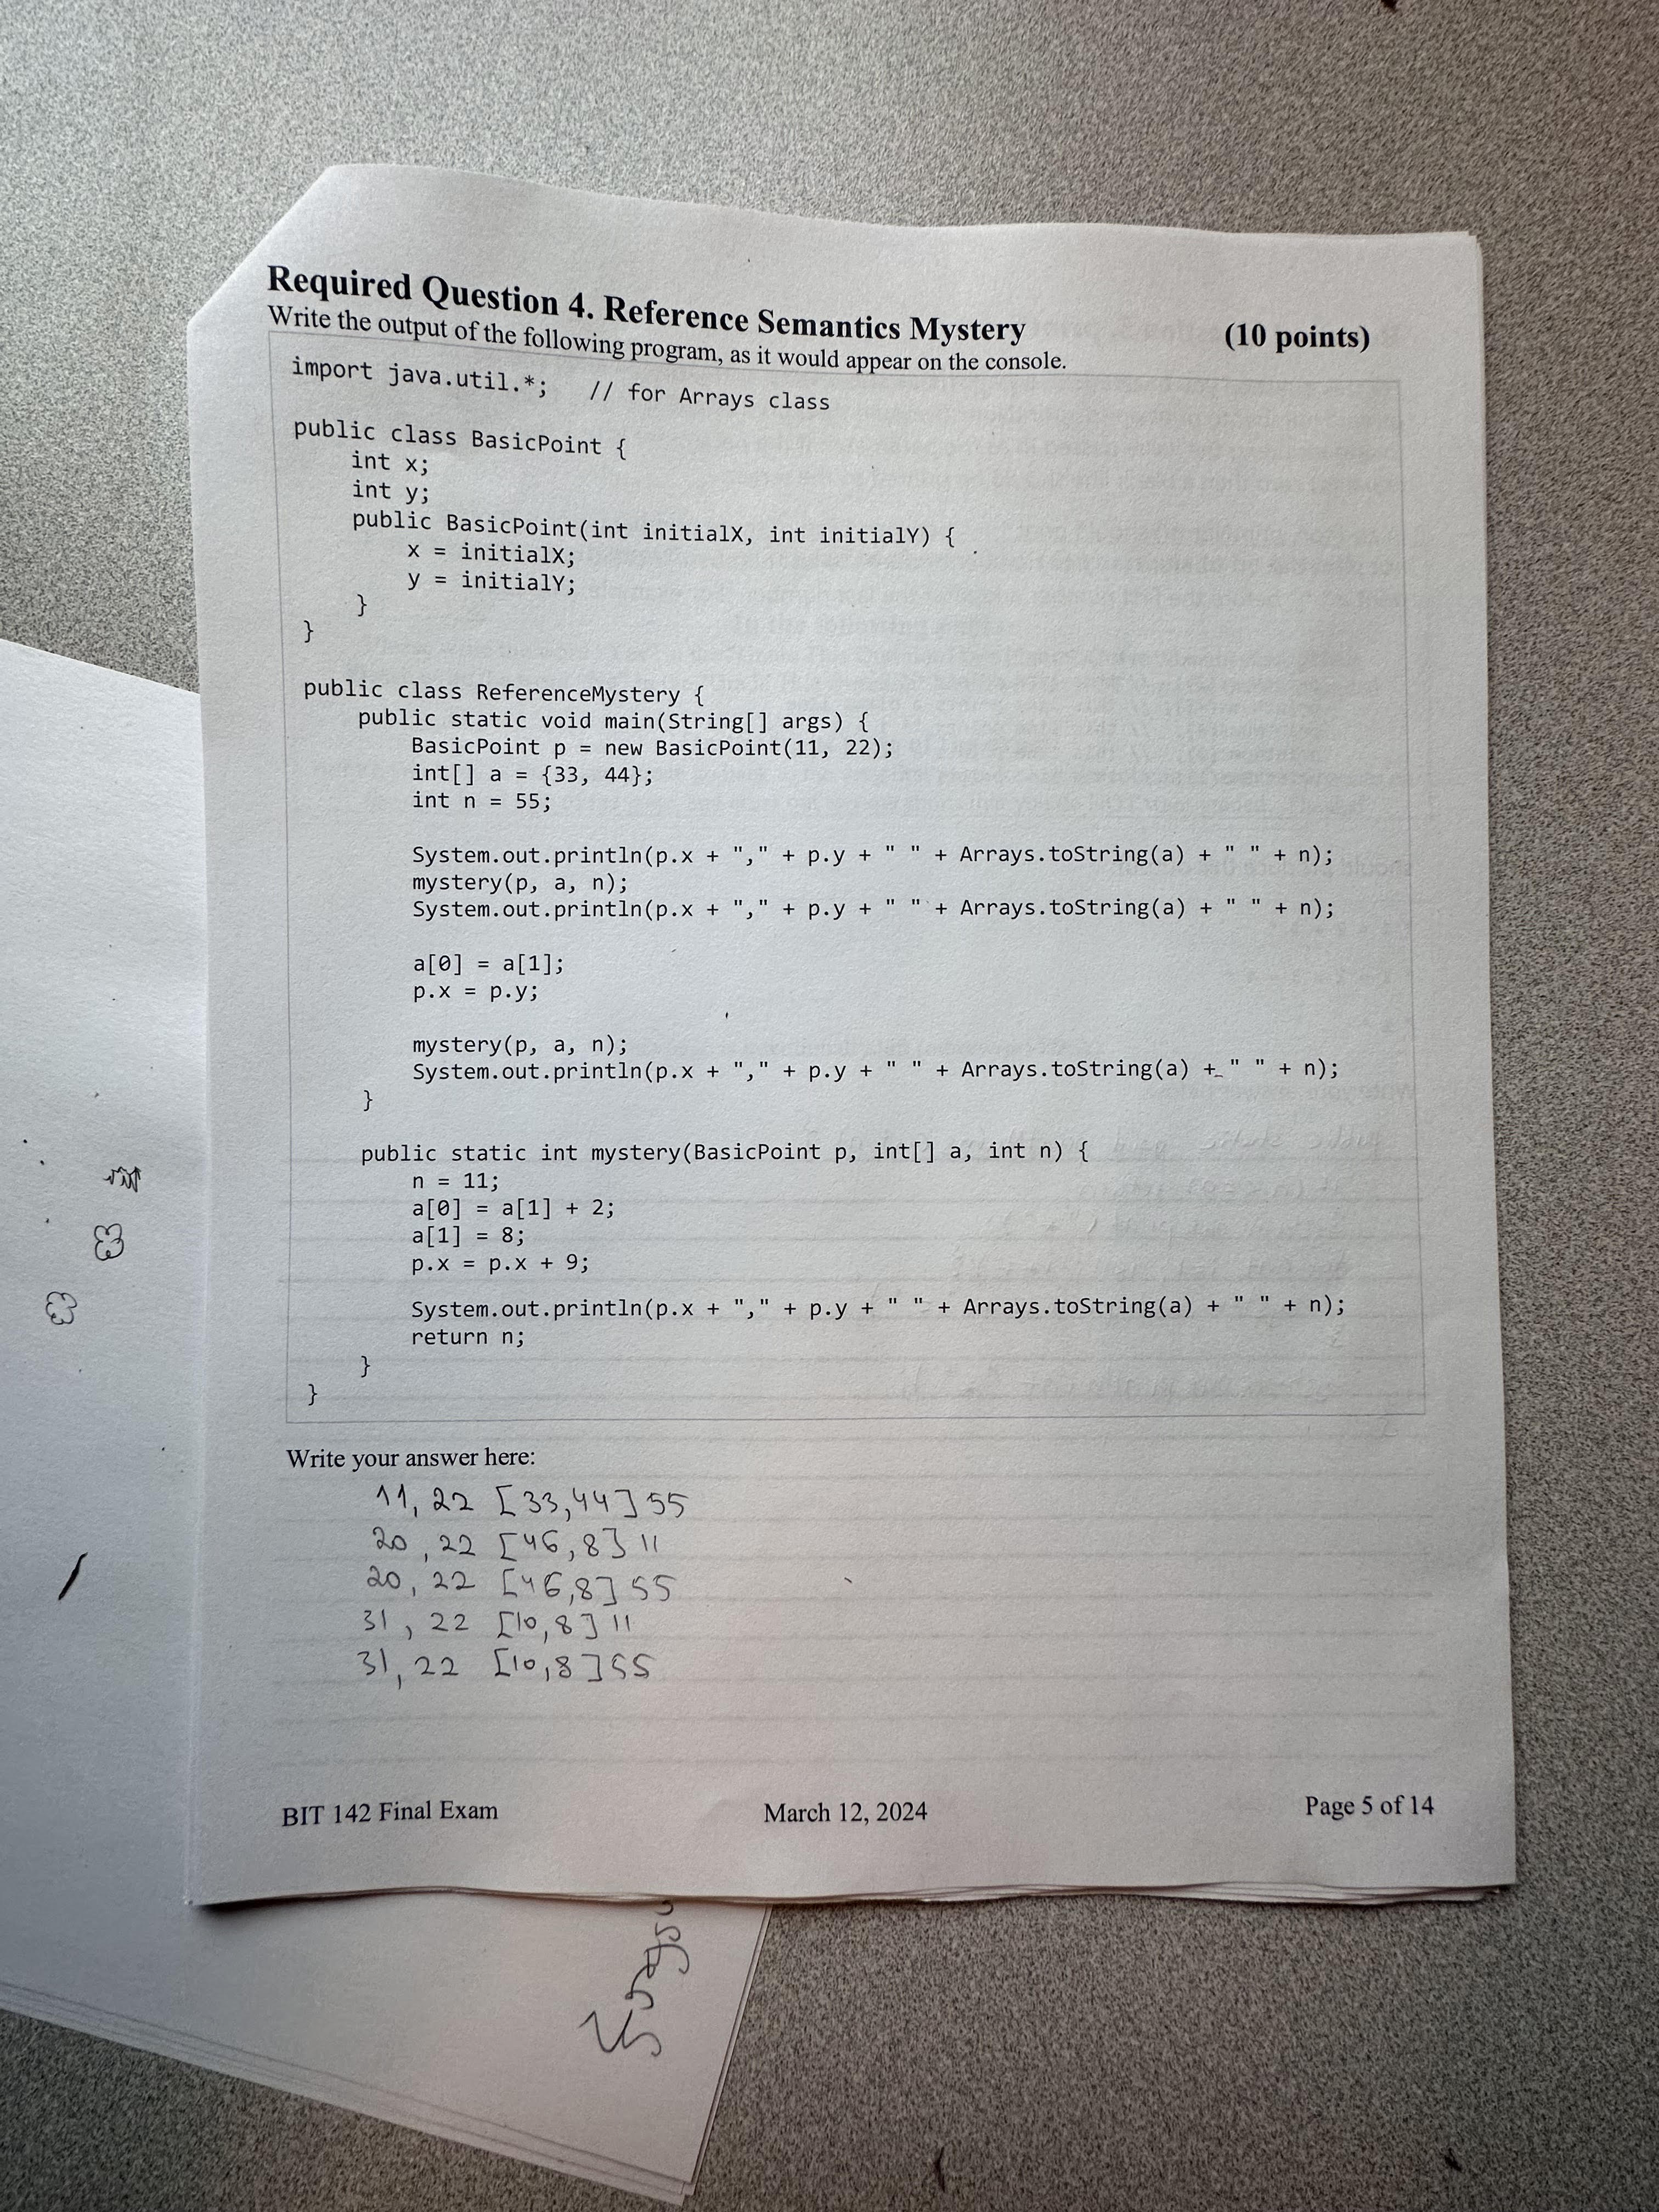 Required Question 4. Reference Semantics Mystery (10 points)
Write the output of the following program, as it would appear on the console.
import java.util.*;   // for Arrays class
public class BasicPoint {
    int x;
    int y;
    public BasicPoint(int initialX, int initialY) {
        x = initialX;
        y = initialY;
    }
}
public class ReferenceMystery {
    public static void main(String[] args) {
        BasicPoint p = new BasicPoint(11, 22);
        int[] a = {33, 44};
        int n = 55;
        System.out.println(p.x + "," + p.y + " " + Arrays.toString(a) + " " + n);
        mystery(p, a, n);
        System.out.println(p.x + "," + p.y + " " + Arrays.toString(a) + " " + n);
        a[0] = a[1];
        p.x = p.y;
        mystery(p, a, n);
        System.out.println(p.x + "," + p.y + " " + Arrays.toString(a) + " " + n);
    }
    public static int mystery(BasicPoint p, int[] a, int n) {
        n = 11;
        a[0] = a[1] + 2;
        a[1] = 8;
        p.x = p.x + 9;
        System.out.println(p.x + "," + p.y + " " + Arrays.toString(a) + " " + n);
        return n;
    }
}
Write your answer here:
11, 22 [33,44] 55
20, 22 [46,8] 11
20, 22 [46,8] 55
31, 22 [10,8] 11
31, 22 [10,8] 55
BIT 142 Final Exam March 12, 2024 Page 5 of 14